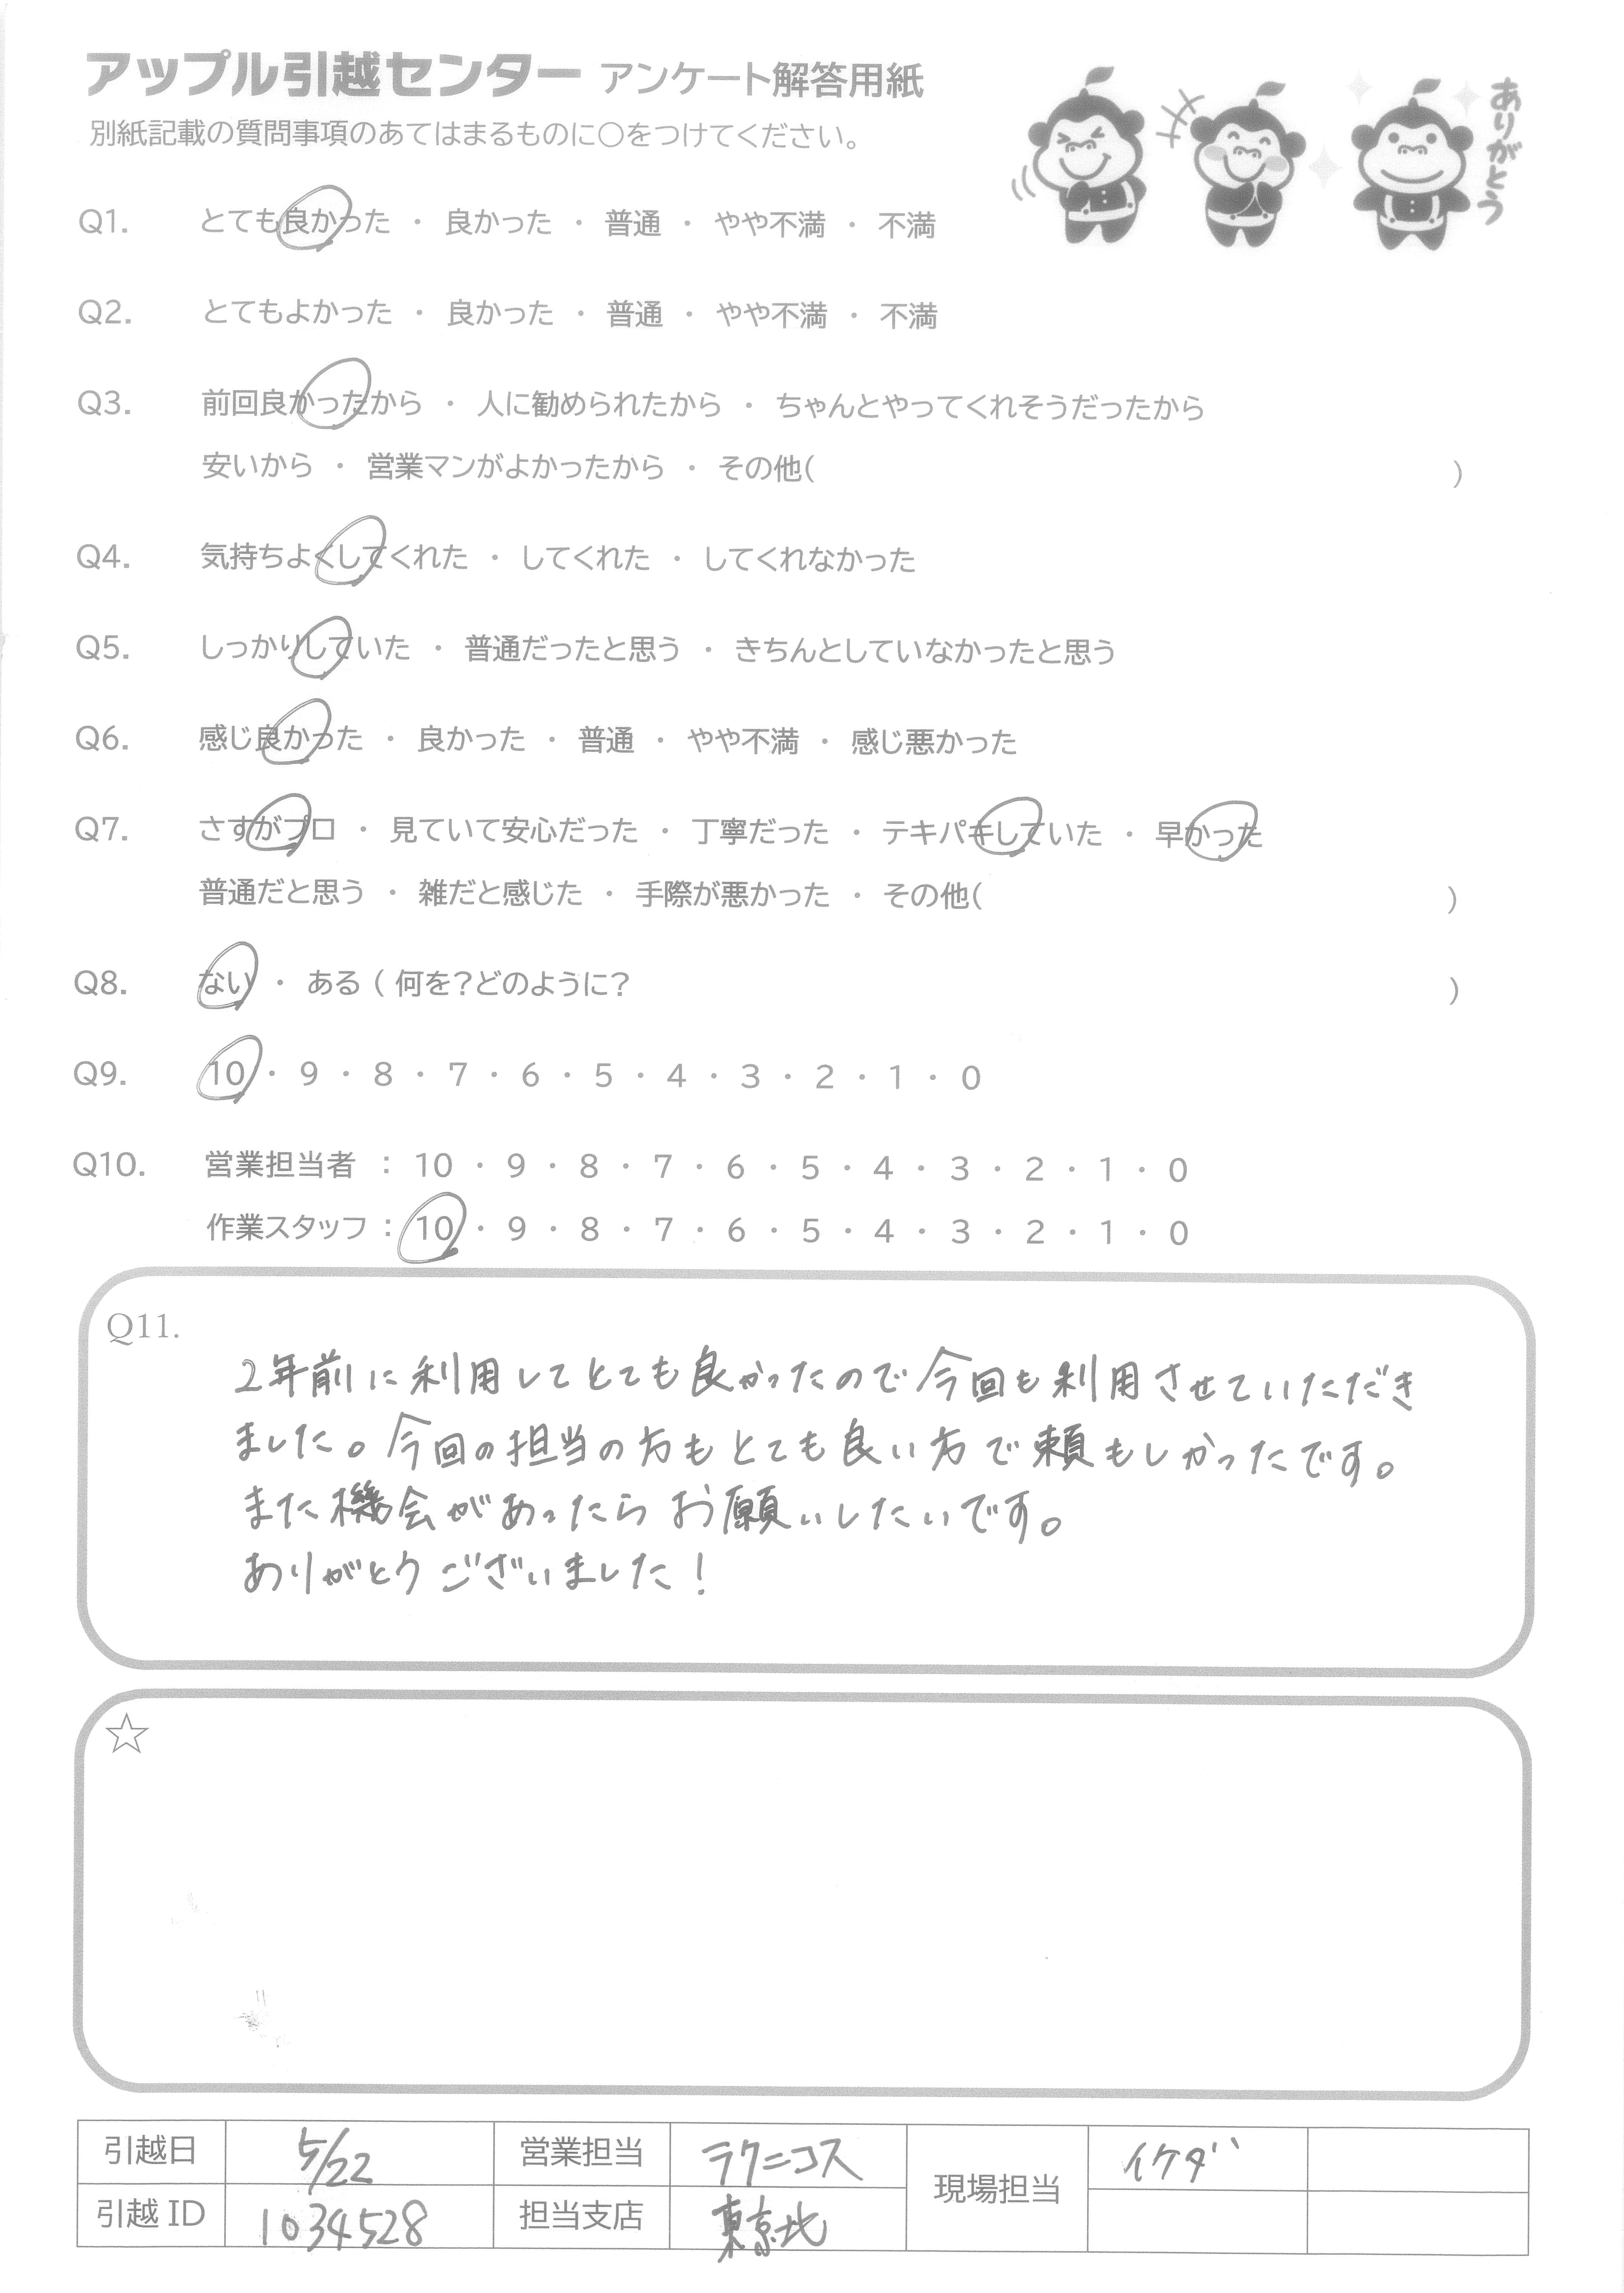 アップル引越センター アンケート解答用紙
別紙記載の質問事項のあてはまるものに○をつけてください。
ありがとう
Q1. とても良かった ・ 良かった ・ 普通 ・ やや不満 ・ 不満
Q2. とてもよかった ・ 良かった ・ 普通 ・ やや不満 ・ 不満
Q3. 前回良かったから ・ 人に勧められたから ・ ちゃんとやってくれそうだったから
安いから ・ 営業マンがよかったから ・ その他( )
Q4. 気持ちよくしてくれた ・ してくれた ・ してくれなかった
Q5. しっかりしていた ・ 普通だったと思う ・ きちんとしていなかったと思う
Q6. 感じ良かった ・ 良かった ・ 普通 ・ やや不満 ・ 感じ悪かった
Q7. さすがプロ ・ 見ていて安心だった ・ 丁寧だった ・ テキパキしていた ・ 早かった
普通だと思う ・ 雑だと感じた ・ 手際が悪かった ・ その他( )
Q8. ない ・ ある ( 何を?どのように? )
Q9. 10 ・ 9 ・ 8 ・ 7 ・ 6 ・ 5 ・ 4 ・ 3 ・ 2 ・ 1 ・ 0
Q10. 営業担当者 : 10 ・ 9 ・ 8 ・ 7 ・ 6 ・ 5 ・ 4 ・ 3 ・ 2 ・ 1 ・ 0
作業スタッフ : 10 ・ 9 ・ 8 ・ 7 ・ 6 ・ 5 ・ 4 ・ 3 ・ 2 ・ 1 ・ 0
Q11.
2年前に利用してとても良かったので今回も利用させていただき
ました。今回の担当の方もとても良い方で頼もしかったです。
また機会があったらお願いしたいです。
ありがとうございました!
☆
引越日 5/22 営業担当 ラクニコス 現場担当 イケダ
引越ID 1034528 担当支店 東京北